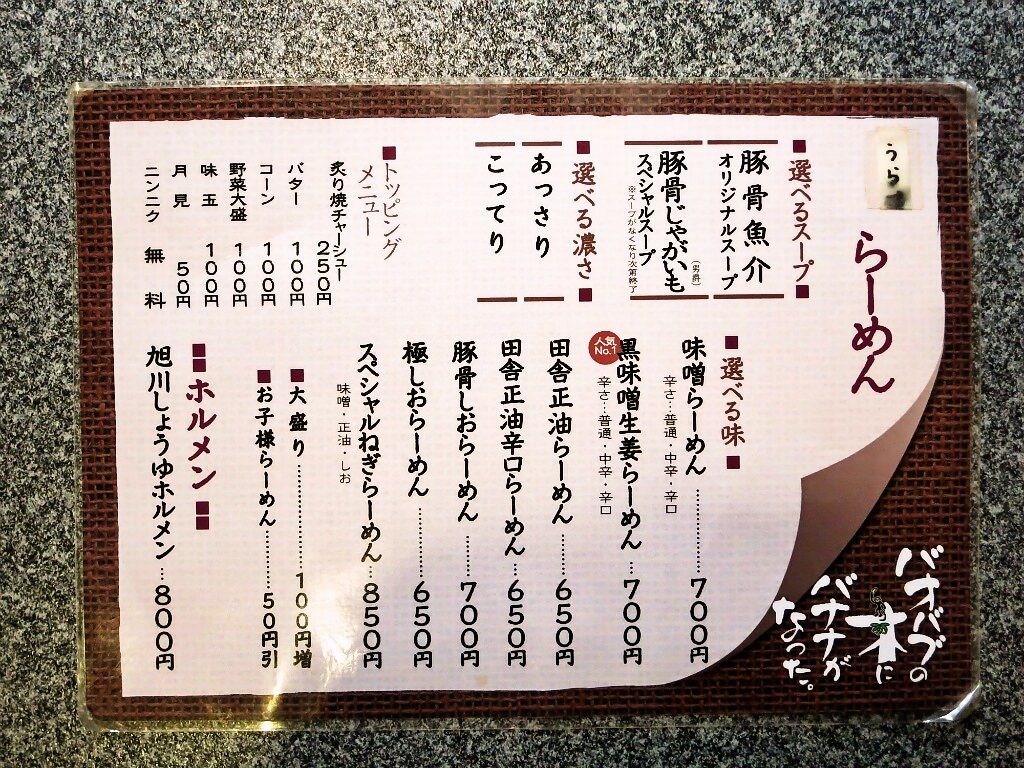 うら
らーめん
■選べるスープ■
豚骨魚介
オリジナルスープ
豚骨じゃがいも
(男爵)
スペシャルスープ
※スープがなくなり次第終了
■選べる濃さ■
あっさり
こってり
■トッピング
メニュー
炙り焼チャーシュー 250円
バター 100円
コーン 100円
野菜大盛 100円
味玉 100円
月見 50円
ニンニク 無料
■選べる味■
味噌らーめん…………700円
辛さ…普通・中辛・辛口
人気
No.1
黒味噌生姜らーめん…700円
辛さ…普通・中辛・辛口
田舎正油らーめん………650円
田舎正油辛口らーめん…650円
豚骨しおらーめん………700円
極しおらーめん…………650円
スペシャルねぎらーめん…850円
味噌・正油・しお
■大盛り………………100円増
■お子様らーめん………50円引
■■ホルメン■■
旭川しょうゆホルメン…800円
バオバブの
木に
バナナが
なった。